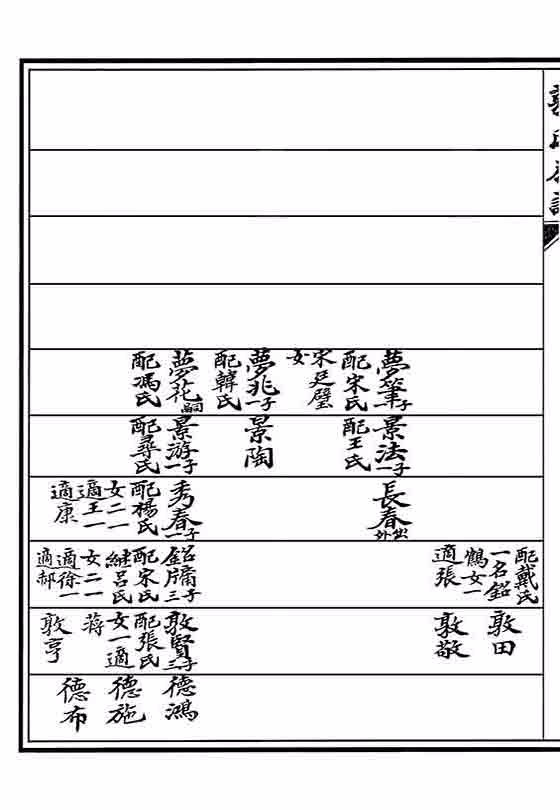 夢筆一子
配宋氏
宋廷璧
女
夢兆一子
配韓氏
夢花嗣
配馮氏
景法一子
配王氏
景陶
景游一子
配尋氏
長春出外
秀春一子
配楊氏
女二一
適王一
適康
配戴氏
一名銘
鶴女一
適張
銘牖三子
配宋氏
継呂氏
女二一
適徐一
適郝
敦田
敦敬
敦賢三子
配張氏
女一適
蒋
敦亨
德鴻
德施
德布